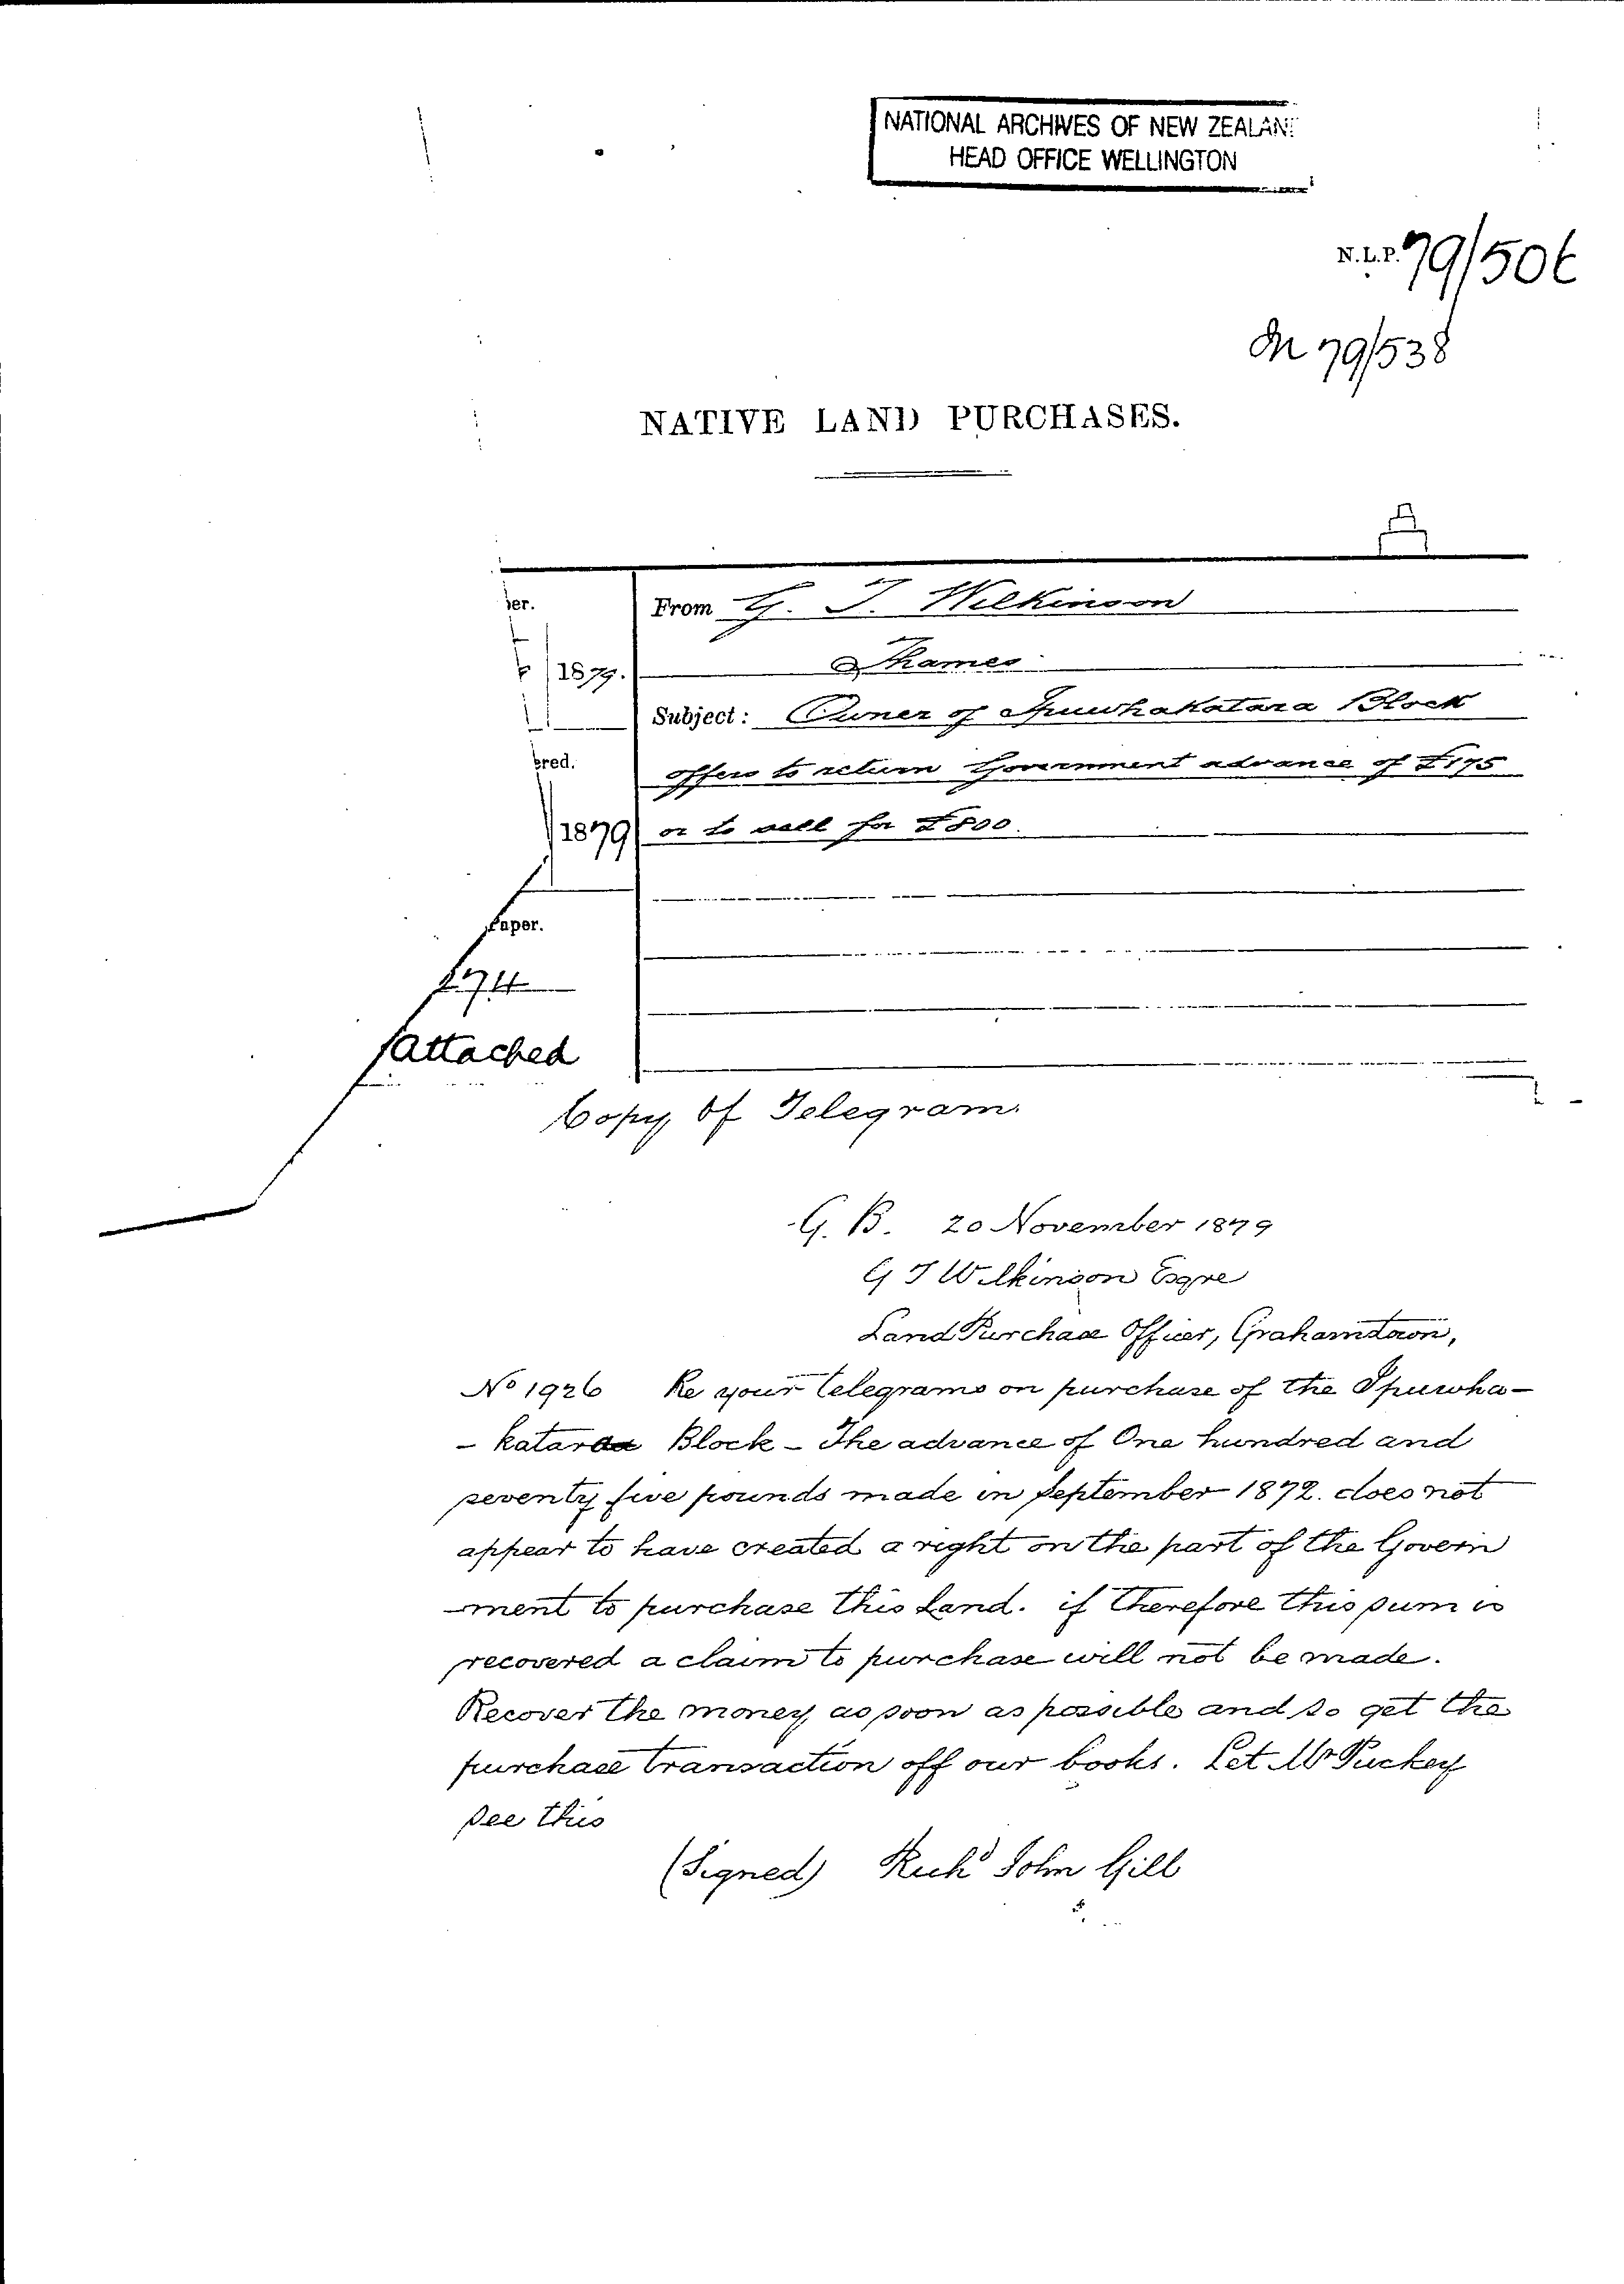 NATIONAL ARCHIVES OF NEW ZEALAN
HEAD OFFICE WELLINGTON
N.L.P. 79/506
79/538
NATIVE LAND PURCHASES.
From G. T. Wilkinson
1879.
Thames
Subject: Owner of Ipuwhakatara Block
offers to return Government advance of £175
1879
or to sell for £800.
Paper.
Attached
Copy of Telegram.
G. B. 20 November 1879
G T Wilkinson Esqre
Land Purchase Officer, Grahamstown,
No 1926 Re your telegrams on purchase of the Ipuwha-
- katara Block - The advance of One hundred and
seventy five pounds made in September 1872. does not
appear to have created a right on the part of the Govern
-ment to purchase this Land. if therefore this sum is
recovered a claim to purchase will not be made.
Recover the money as soon as possible and so get the
purchase transaction off our books. Let Mr Puckey
see this
(Signed) Richd John Gill